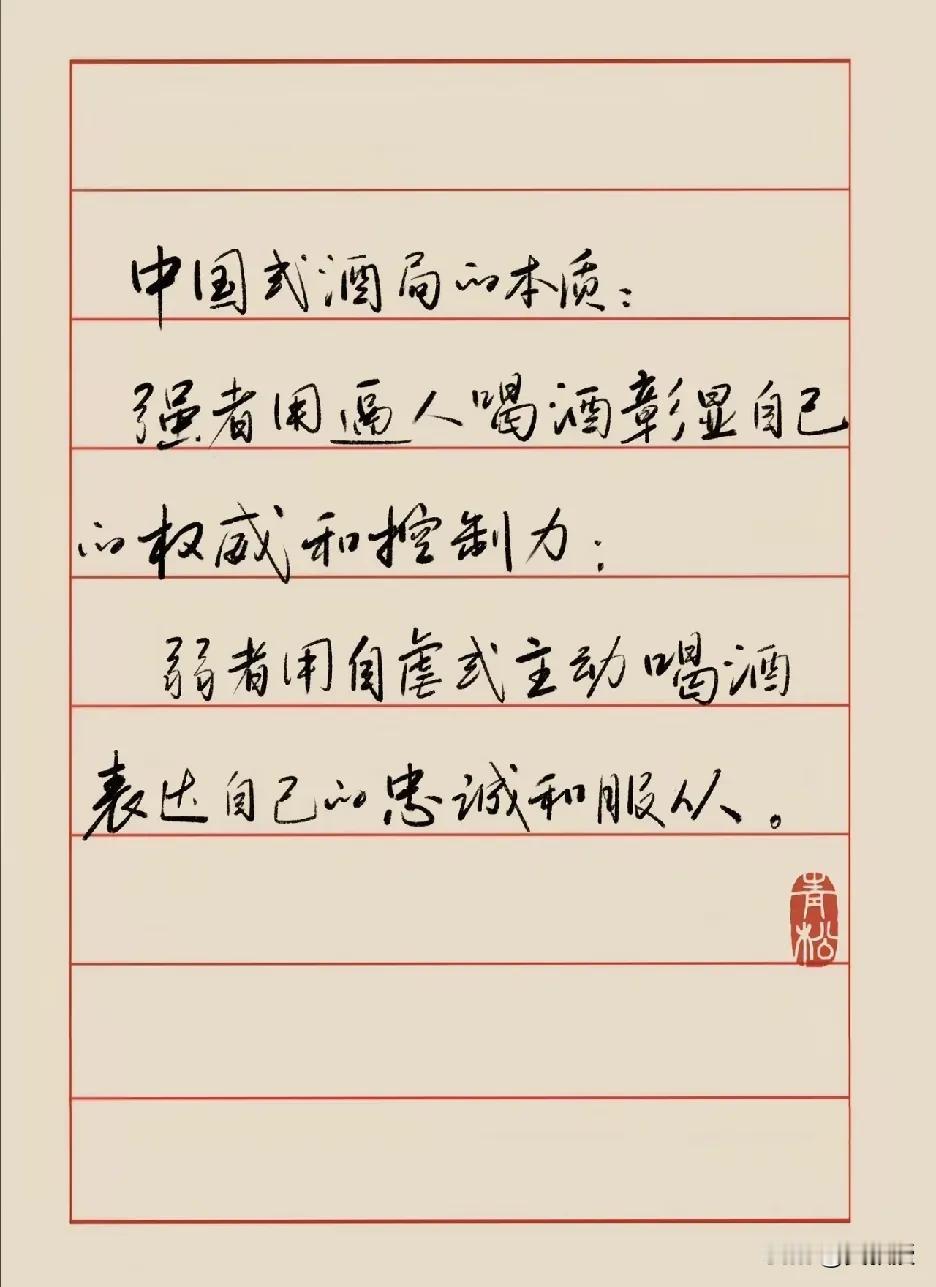 中国式酒局的本质：
强者用逼人喝酒彰显自己
的权威和控制力；
弱者用自虐式主动喝酒
表达自己的忠诚和服从。
青松